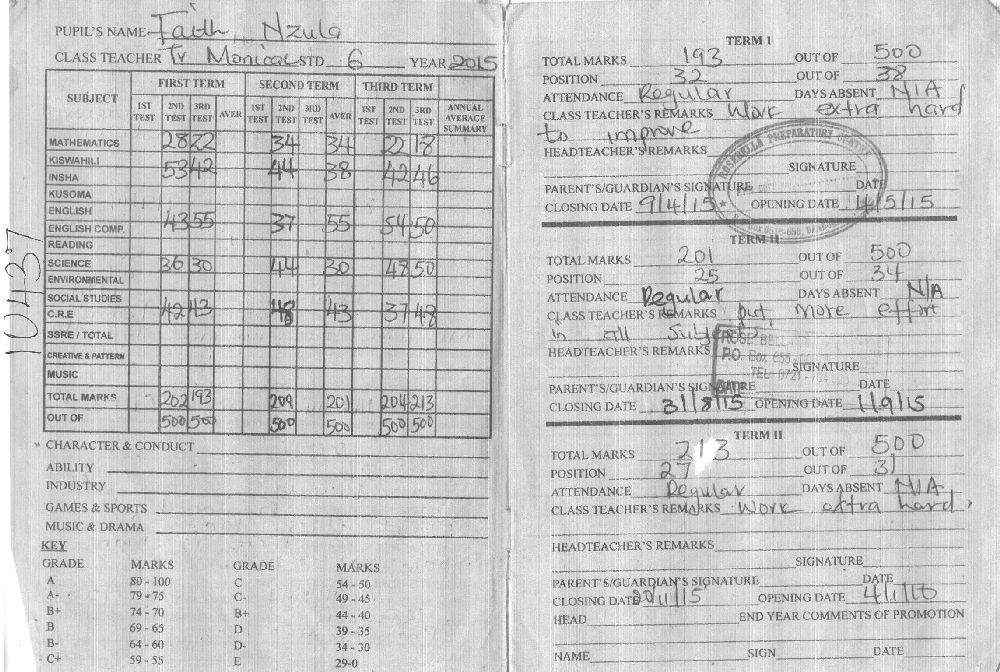 PUPIL'S NAME Faith Nzula
CLASS TEACHER Tr Monicah STD 6 YEAR 2015
SUBJECT FIRST TERM SECOND TERM THIRD TERM
1ST TEST 2ND TEST 3RD TEST AVER 1ST TEST 2ND TEST 3RD TEST AVER 1ST TEST 2ND TEST 3RD TEST ANNUAL AVERAGE SUMMARY
MATHEMATICS 28 22 34 34 22 18
KISWAHILI 53 42 44 38 42 46
INSHA
KUSOMA
ENGLISH 43 55 37 55 54 50
ENGLISH COMP.
READING
SCIENCE 36 30 44 30 48 50
ENVIRONMENTAL
SOCIAL STUDIES 42 43 48 43 37 48
C.R.E
SSRE / TOTAL
CREATIVE & PATTERN
MUSIC
TOTAL MARKS 202 193 209 201 204 213
OUT OF 500 500 500 500 500 500
10437
CHARACTER & CONDUCT
ABILITY
INDUSTRY
GAMES & SPORTS
MUSIC & DRAMA
KEY
GRADE MARKS GRADE MARKS
A 80 - 100 C 54 - 50
A- 79 - 75 C- 49 - 45
B+ 74 - 70 B+ 44 - 40
B 69 - 65 D 39 - 35
B- 64 - 60 D- 34 - 30
C+ 59 - 55 E 29-0
TERM I
TOTAL MARKS 193 OUT OF 500
POSITION 32 OUT OF 38
ATTENDANCE Regular DAYS ABSENT N/A
CLASS TEACHER'S REMARKS Work extra hard
to improve
HEADTEACHER'S REMARKS
SIGNATURE
PARENT'S/GUARDIAN'S SIGNATURE DATE
CLOSING DATE 9/4/15 OPENING DATE 4/5/15
TERM II
TOTAL MARKS 201 OUT OF 500
POSITION 25 OUT OF 34
ATTENDANCE Regular DAYS ABSENT N/A
CLASS TEACHER'S REMARKS put more effort
in all Subjects
HEADTEACHER'S REMARKS
P.O. Box 655
SIGNATURE
PARENT'S/GUARDIAN'S SIGNATURE DATE
CLOSING DATE 31/8/15 OPENING DATE 1/9/15
TERM II
TOTAL MARKS 213 OUT OF 500
POSITION 27 OUT OF 31
ATTENDANCE Regular DAYS ABSENT N/A
CLASS TEACHER'S REMARKS Work extra hard,
HEADTEACHER'S REMARKS
SIGNATURE
PARENT'S/GUARDIAN'S SIGNATURE DATE
CLOSING DATE 20/11/15 OPENING DATE 4/1/16
HEAD END YEAR COMMENTS OF PROMOTION
NAME SIGN DATE